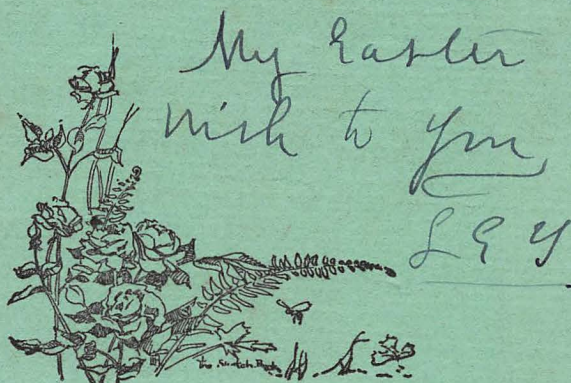 My Easter
wish to you
L E Y
The Sketch Book